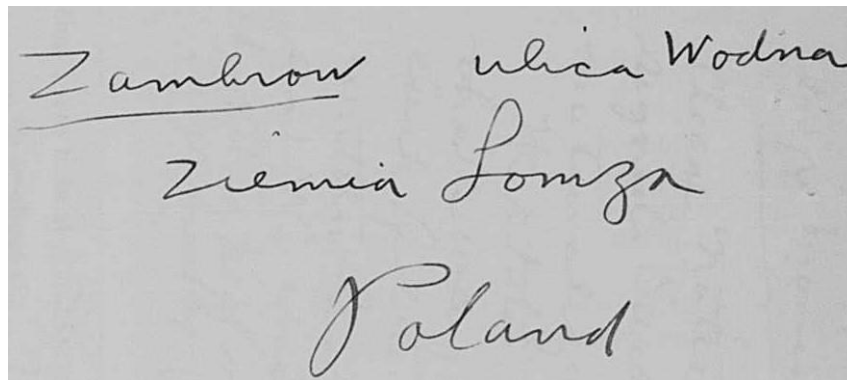 Zambrow ulica Wodna
Ziemia Lomza
Poland